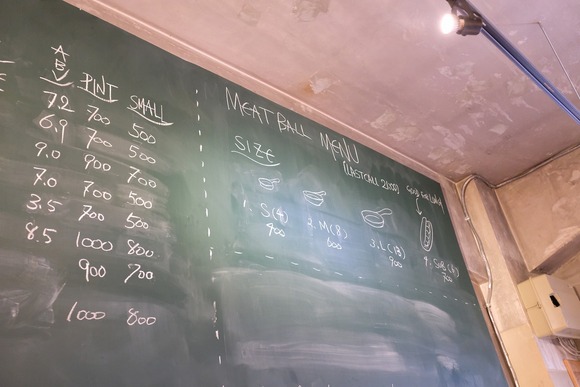 ABV PINT SMALL
7.2 700 500
6.9 700 500
9.0 900 700
7.0 700 500
3.5 700 500
8.5 1000 800
900 700
1000 800
MEATBALL MENU
(LASTCALL 21:00)
SIZE
1. S(4)
400
2. M(8)
600
3. L(13)
900
4. SUB(4)
700